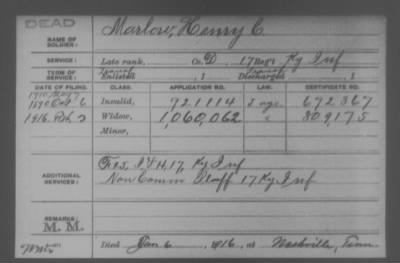 DEAD
NAME OF SOLDIER: Marlow, Henry C.
SERVICE: Late rank, Co. D, 17 Reg't Ky Inf
TERM OF SERVICE: Enlisted , 1 Discharged , 1
DATE OF FILING. CLASS. APPLICATION NO. LAW. CERTIFICATE NO.
1890 Oct 6 Invalid, 721114 672,367
1916. Feb 3 Widow, 1,060,062 809,175
Minor,
ADDITIONAL SERVICES: F 25, I & H, 17, Ky Inf
Non Comm Staff 17 Ky Inf
REMARKS:
M. M.
Died Jan 6, 1916, at Nashville, Tenn.